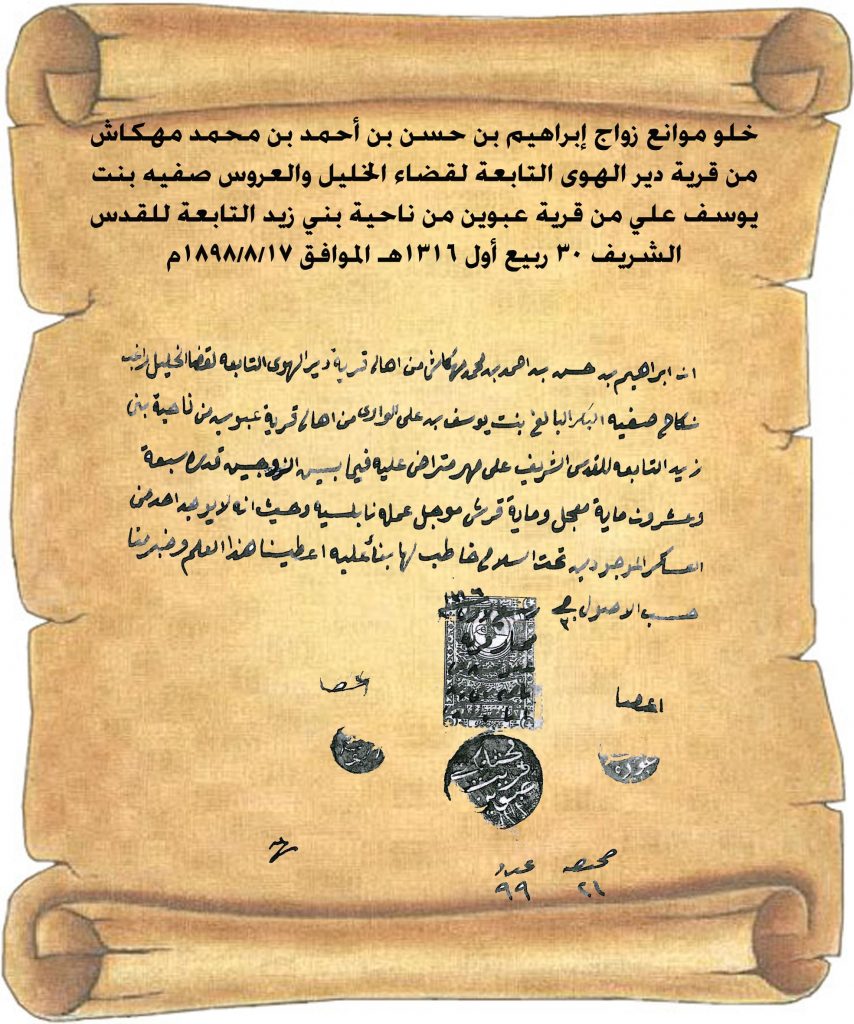 خلو موانع زواج إبراهيم بن حسن بن أحمد بن محمد مهكاش
من قرية دير الهوى التابعة لقضاء الخليل والعروس صفيه بنت
يوسف علي من قرية عبوين من ناحية بني زيد التابعة للقدس
الشريف ٣٠ ربيع أول ١٣١٦هـ الموافق ١٨٩٨/٨/١٧م
ان ابراهيم بن حسن بن احمد بن محمد مهكاش من اهالي قرية دير الهوى التابعه لقضا الخليل راغب
نكاح صفيه البكر البالغ بنت يوسف بن علي من اهالي قرية عبوين من ناحية بني
زيد التابعه للقدس الشريف على مهر متراضى عليه فيما بين الزوجين قدره سبعة
وعشرون ماية معجل وماية قرش موجل عمله نابلسيه وحيث انه لا يوجد احد من
العساكر الموجودين تحت السلاح خاطب لها بنأ عليه اعطينا هذا العلم وخبر منا
حسب الاصول
اعضا
اعضا
قرية
عبوين
عدد
٩٩
٢١